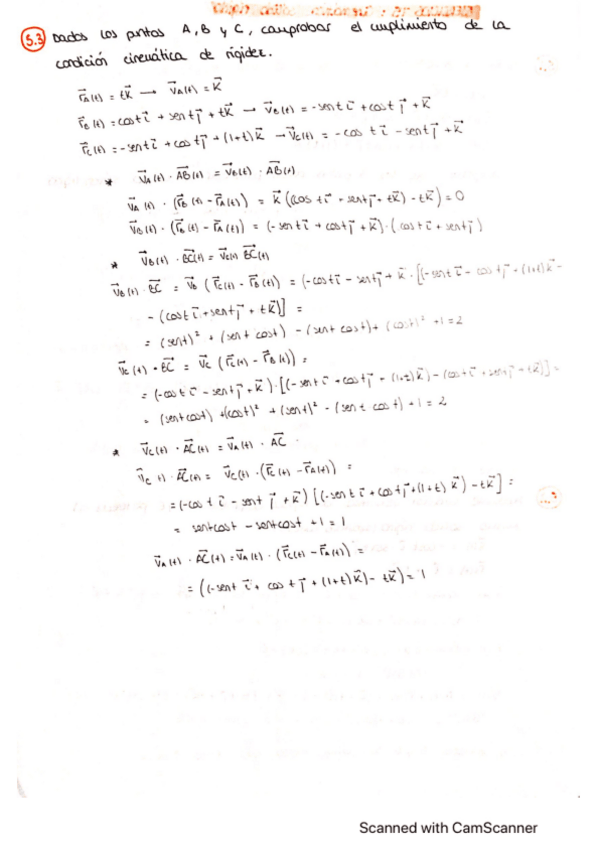 5.3 Dados los puntos A, B y C, comprobar el cumplimiento de la
condición cinemática de rigidez.
r⃗A(t) = tk⃗ → v⃗A(t) = k⃗
r⃗B(t) = cost i⃗ + sent j⃗ + tk⃗ → v⃗B(t) = -sent i⃗ + cost j⃗ + k⃗
r⃗C(t) = -sent i⃗ + cost j⃗ + (1+t) k⃗ → v⃗C(t) = -cos t i⃗ - sent j⃗ + k⃗
* v⃗A(t) · AB⃗(t) = v⃗B(t) · AB⃗(t)
v⃗A(t) · (r⃗B(t) - r⃗A(t)) = k⃗ ((cos t i⃗ + sent j⃗ + tk⃗) - tk⃗) = 0
v⃗B(t) · (r⃗B(t) - r⃗A(t)) = (-sent i⃗ + cost j⃗ + k⃗) · (cost i⃗ + sent j⃗)
* v⃗B(t) · BC⃗(t) = v⃗C(t) BC⃗(t)
v⃗B(t) · BC⃗ = v⃗B (r⃗C(t) - r⃗B(t)) = (-cost i⃗ - sent j⃗ + k⃗ · [(-sent i⃗ - cos t j⃗ + (1+t) k⃗ -
- (cost i⃗ + sent j⃗ + tk⃗)] =
= (sent)² + (sent cost) - (sent cost) + (cost)² + 1 = 2
v⃗C(t) · BC⃗ = v⃗C (r⃗C(t) - r⃗B(t)) =
= (-cos t i⃗ - sent j⃗ + k⃗) · [(-sent i⃗ + cost j⃗ + (1+t) k⃗) - (cost i⃗ + sent j⃗ + tk⃗)] =
= (sent cost) + (cost)² + (sent)² - (sent cost) + 1 = 2
* v⃗C(t) · AC⃗(t) = v⃗A(t) · AC⃗
v⃗C(t) · AC⃗(t) = v⃗C(t) · (r⃗C(t) - r⃗A(t)) =
= (-cos t i⃗ - sent j⃗ + k⃗) [(-sent i⃗ + cost j⃗ + (1+t) k⃗) - tk⃗] =
= sent cost - sent cost + 1 = 1
v⃗A(t) · AC⃗(t) = v⃗A(t) · (r⃗C(t) - r⃗A(t)) =
= ((-sent i⃗ + cos t j⃗ + (1+t) k⃗) - tk⃗) = 1
Scanned with CamScanner